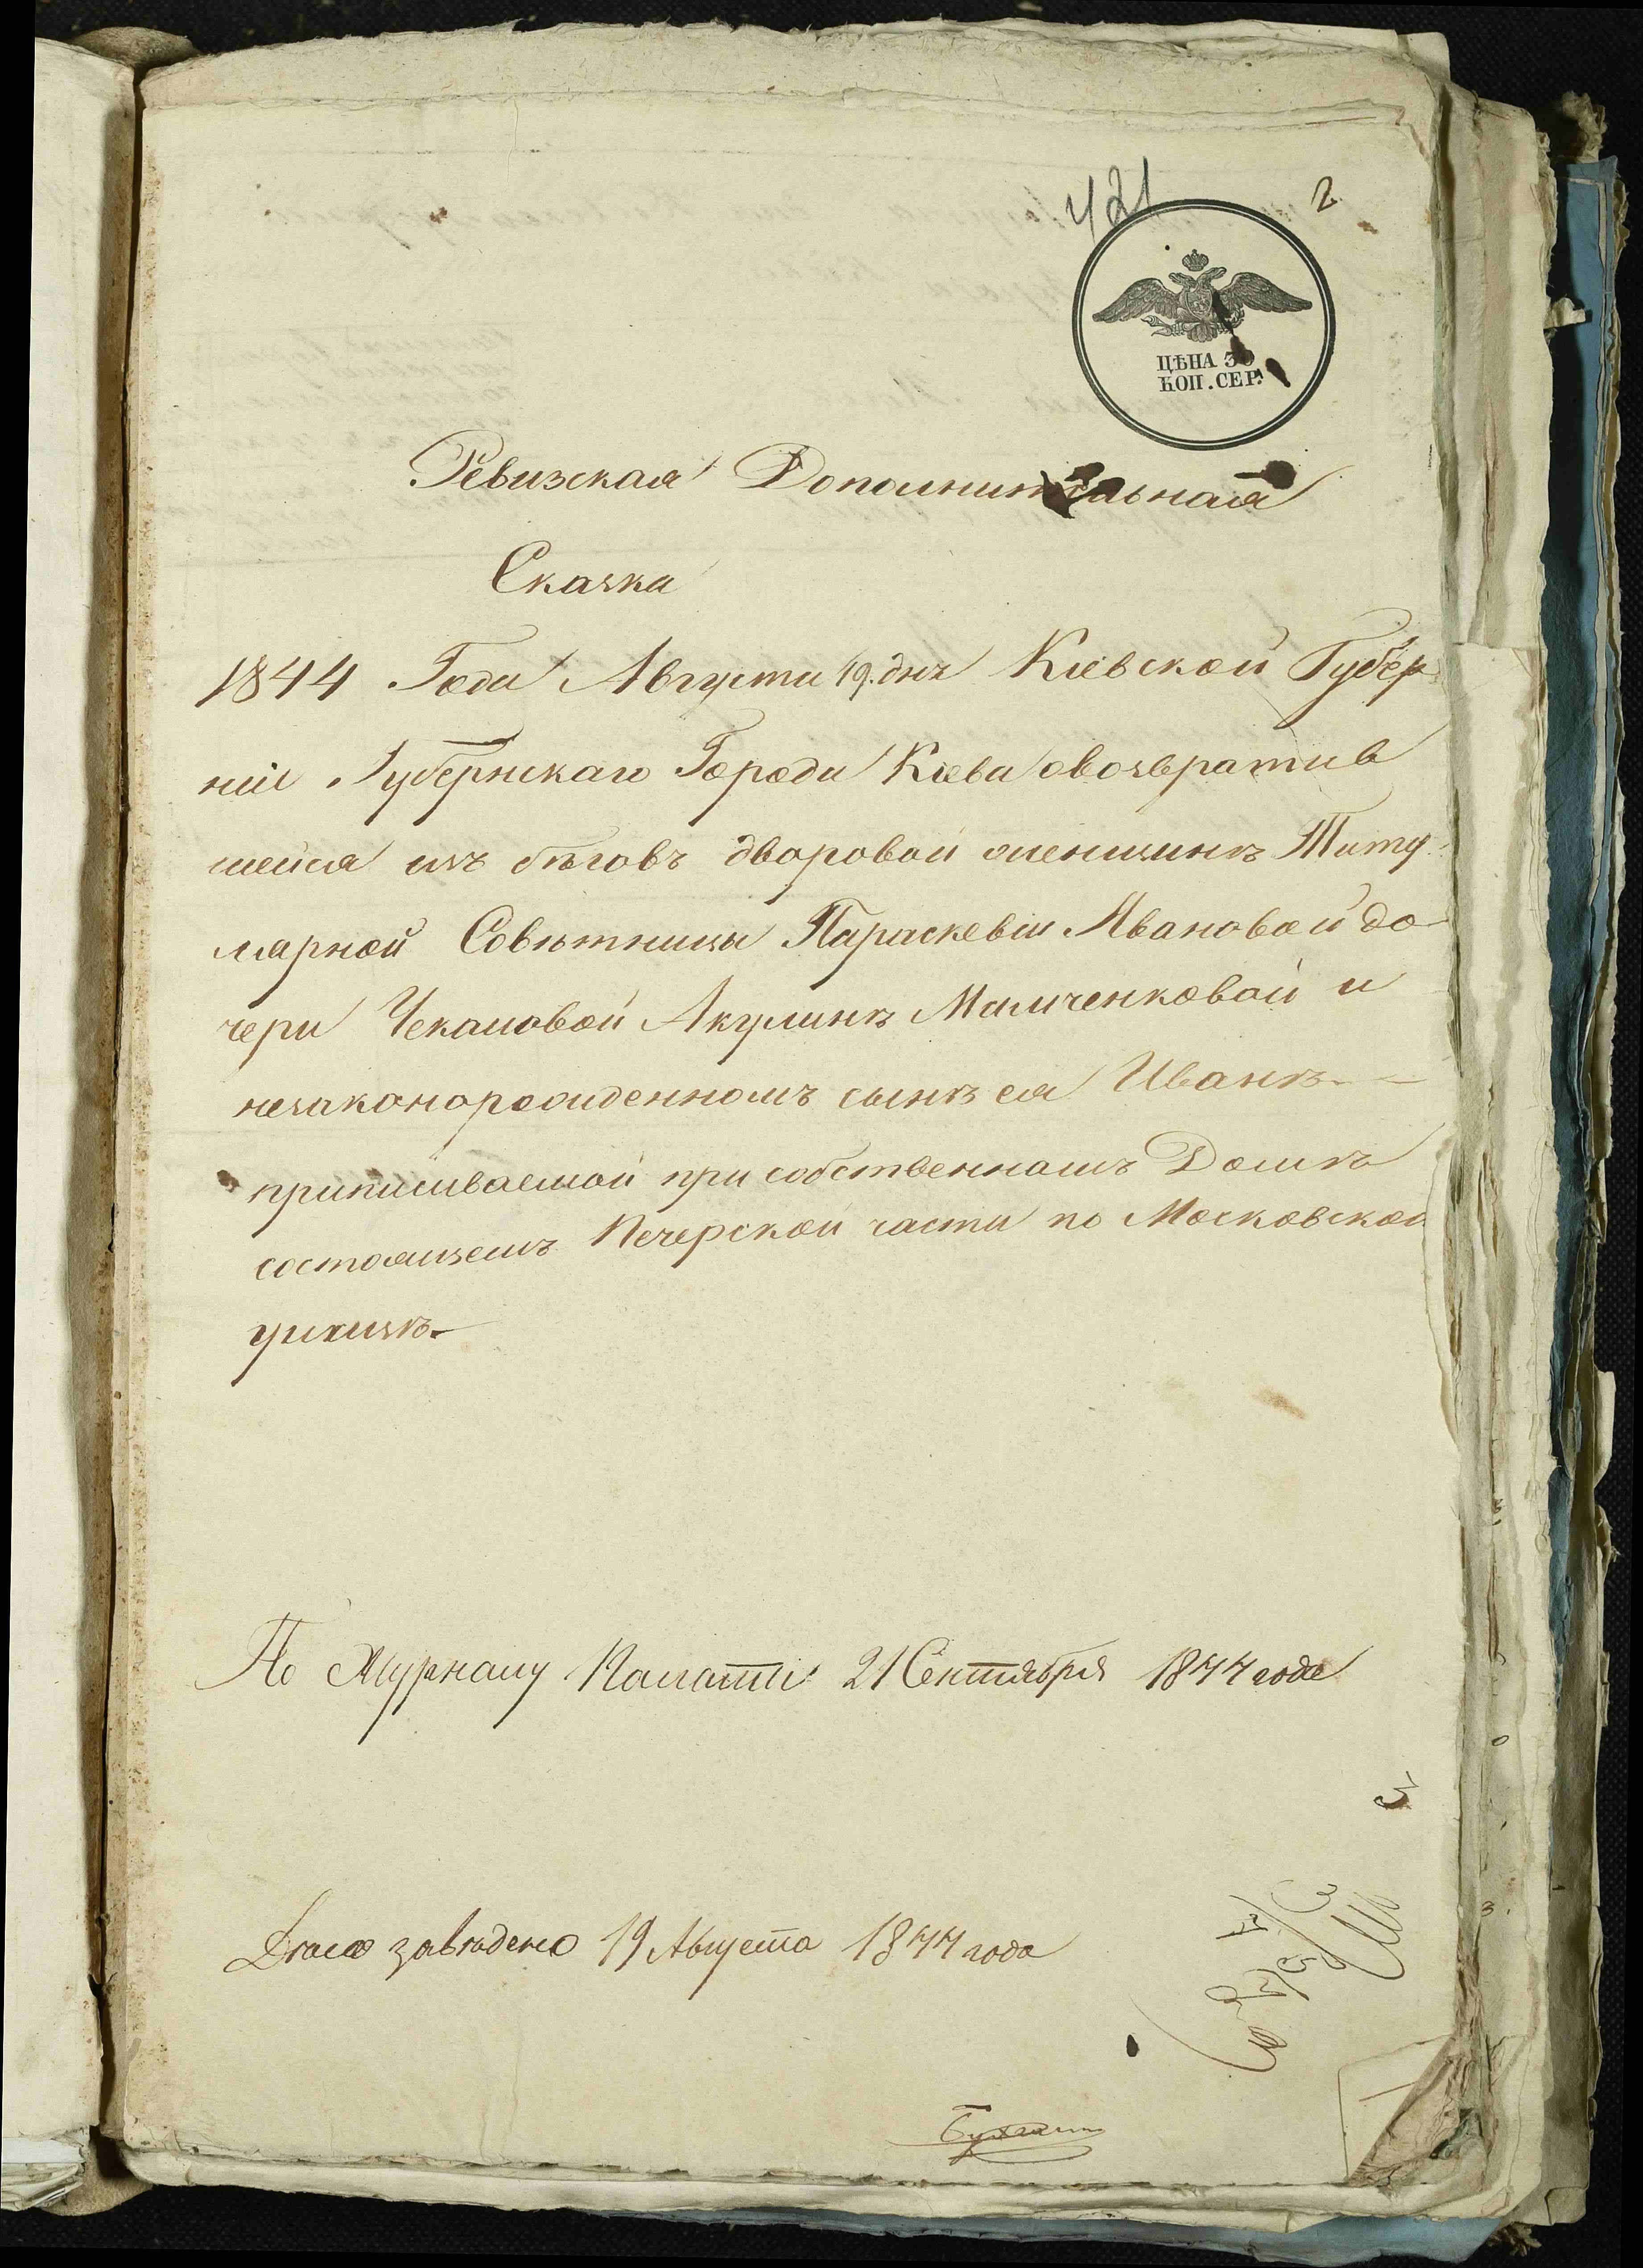 421
2
ЦѢНА 30
КОП. СЕР.
Ревизская Дополнительная
Сказка
1844 Года Августа 19. дня Кіевской Губер
ніи Губернскаго Города Кіева овозвратив
шейся изъ бѣговъ дворовой женщинѣ Титу
лярной Совѣтницы Параскевіи Ивановой до
чери Чекаловой Акулинѣ Мамченковой и
незаконорожденномъ сынѣ ея Иванѣ
приписиваемой при собственномъ Домѣ
состоящемъ Печерской части по Московской
улицѣ
По Журналу Палаты 21 Сентября 1844 года
Дѣло заведено 19 Августа 1844 года